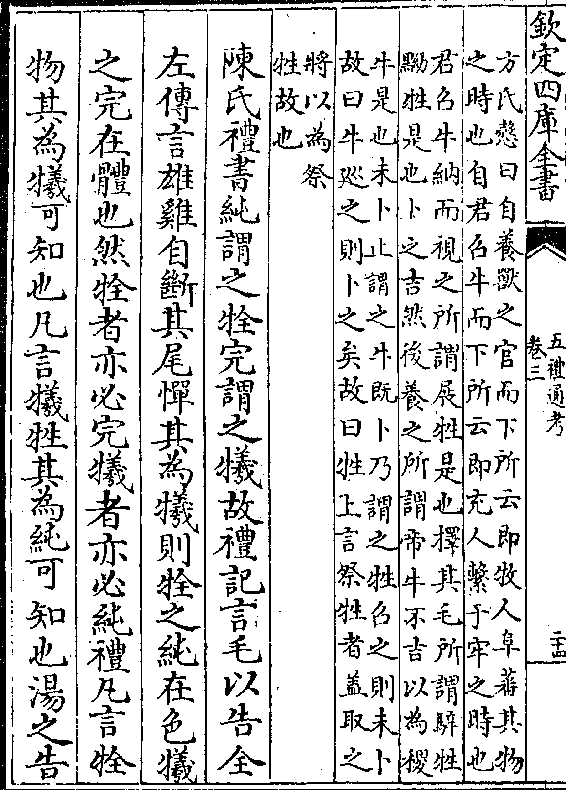 欽定四庫全書
五禮通考
卷三
二十四
方氏慤曰自養獸之官而下所云即牧人阜蕃其物
之時也自君召牛而下所云即充人繫于牢之時也
君召牛納而視之所謂展牲是也擇其毛所謂騂牲
黝牲是也卜之吉然後養之所謂帝牛不吉以為稷
牛是也未卜止謂之牛既卜乃謂之牲召之則未卜
故曰牛廵之則卜之矣故曰牲上言祭牲者蓋取之
將以為祭
牲故也
陳氏禮書純謂之牷完謂之犧故禮記言毛以告全
左傳言雄雞自斷其尾憚其為犧則牷之純在色犧
之完在體也然牷者亦必完犧者亦必純禮凡言牷
物其為犧可知也凡言犧牲其為純可知也湯之告